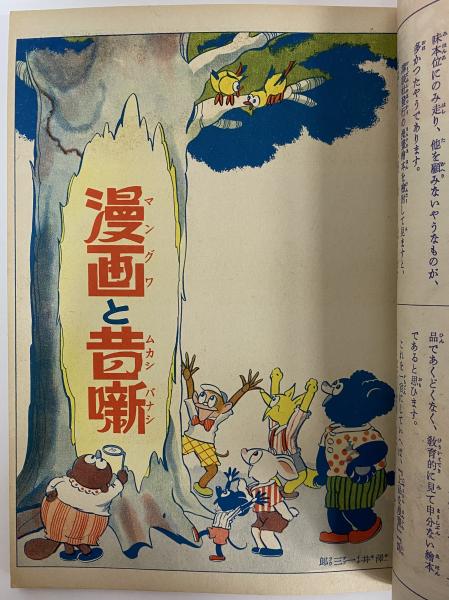 味本位にのみ走り、他を顧みないやうなものが、
多かつたやうであります。
品であくどくなく、敎育的に見て申分ない繪本
であると思ひます。
マングワ ムカシ バナシ
漫画と昔噺
澤井一三郎